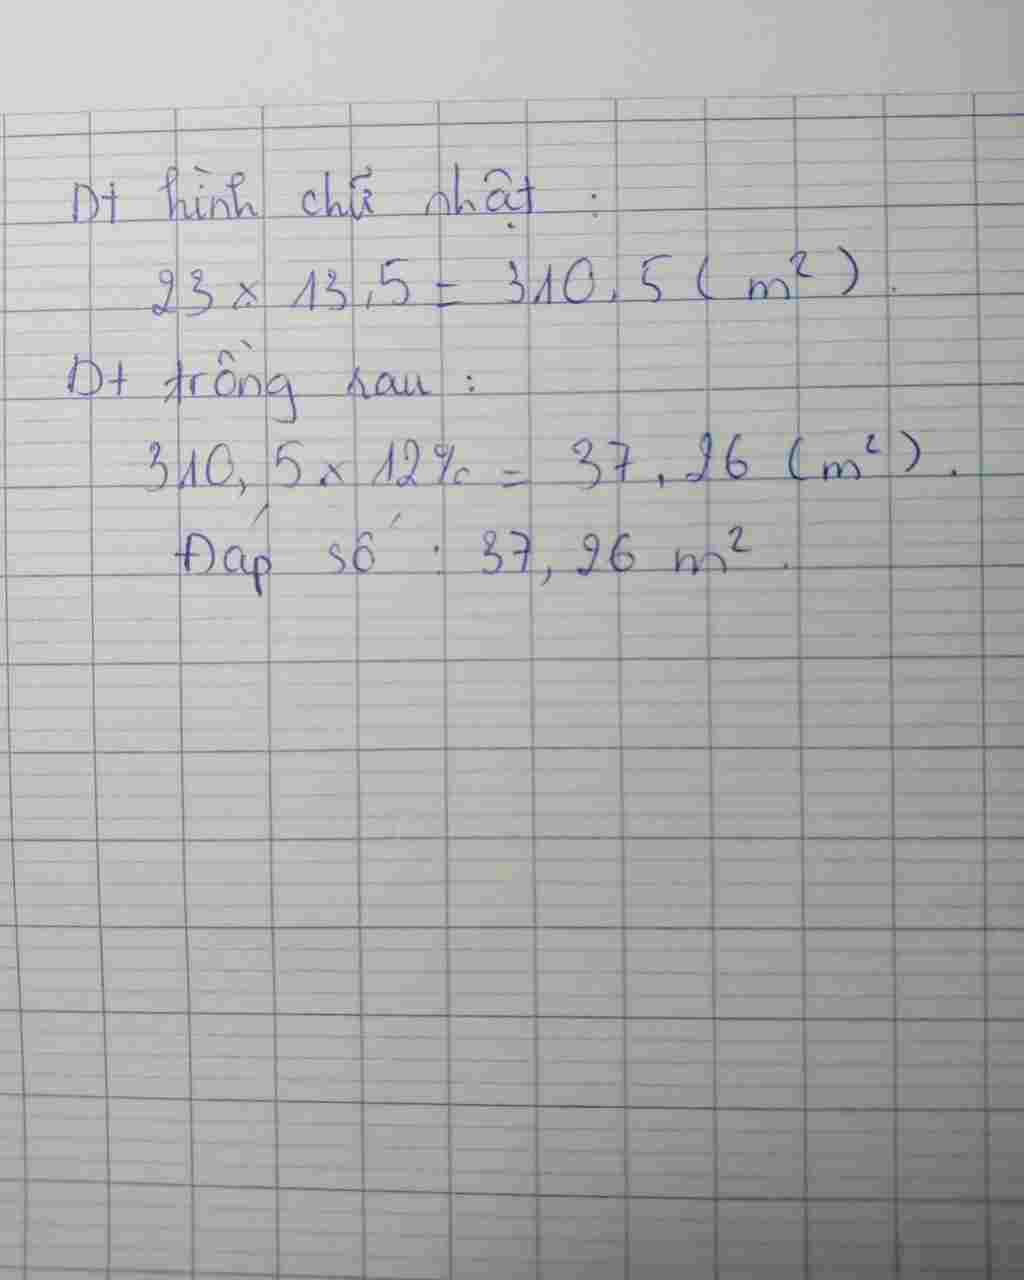 Dt hình chữ nhật :
23 x 13,5 = 310,5 ( m² ).
Dt trồng rau :
310,5 x 12% = 37,26 (m²).
Đáp số : 37,26 m².